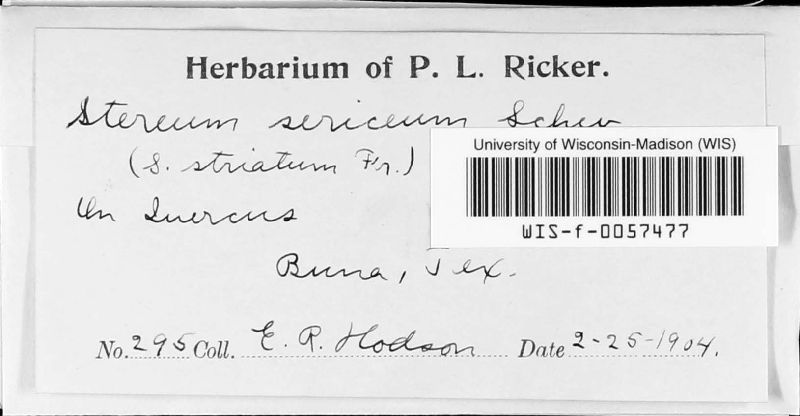 Herbarium of P. L. Ricker.
Stereum sericeum Schw
(S. striatum Fr.)
On Quercus
Buna, Tex.
No. 295 Coll. E. R. Hodson Date 2-25-1904.
University of Wisconsin-Madison (WIS)
WIS-f-0057477